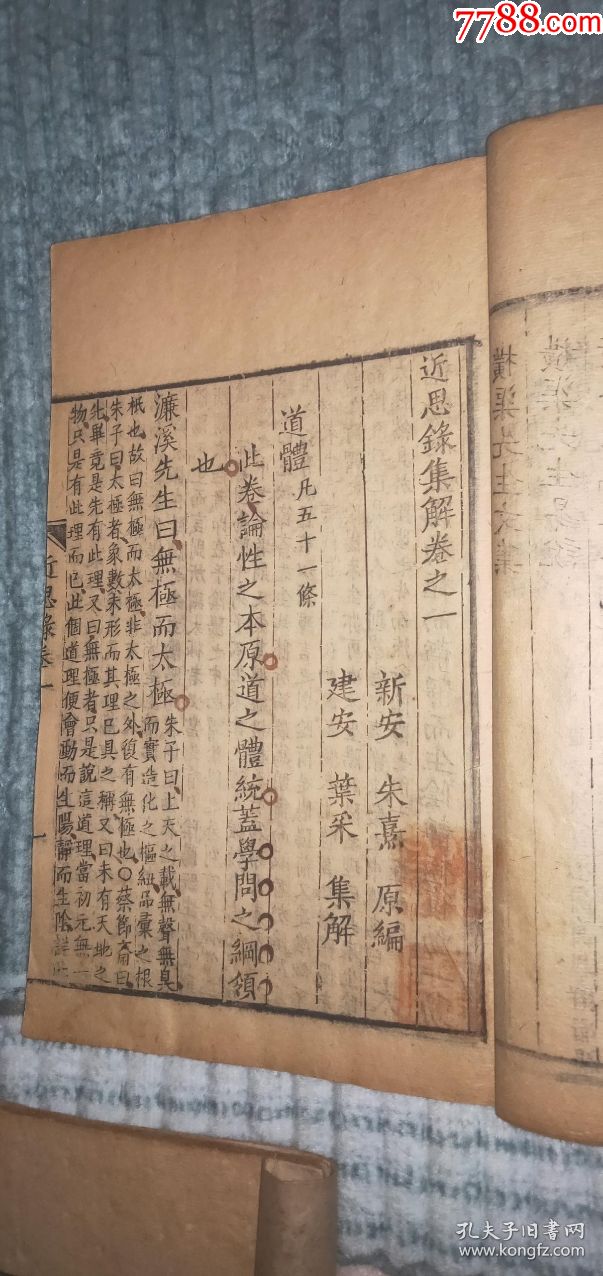 7788.com
近思錄集解卷之一
新安 朱熹 原編
建安 葉采 集解
道體凡五十一條
此卷論性之本原道之體統蓋學問之綱領
也
濂溪先生曰無極而太極
朱子曰上天之載無聲無臭
而實造化之樞紐品彙之根
柢也故曰無極而太極非太極之外復有無極也○蔡節齋曰
朱子曰太極者象數未形而其理已具之稱又曰未有天地之
先畢竟是先有此理又曰無極者只是說這道理當初元無一
物只是有此理而已此個道理便會動而生陽靜而生陰
近思錄卷一
一
橫渠先生文集
孔夫子旧书网
www.kongfz.com